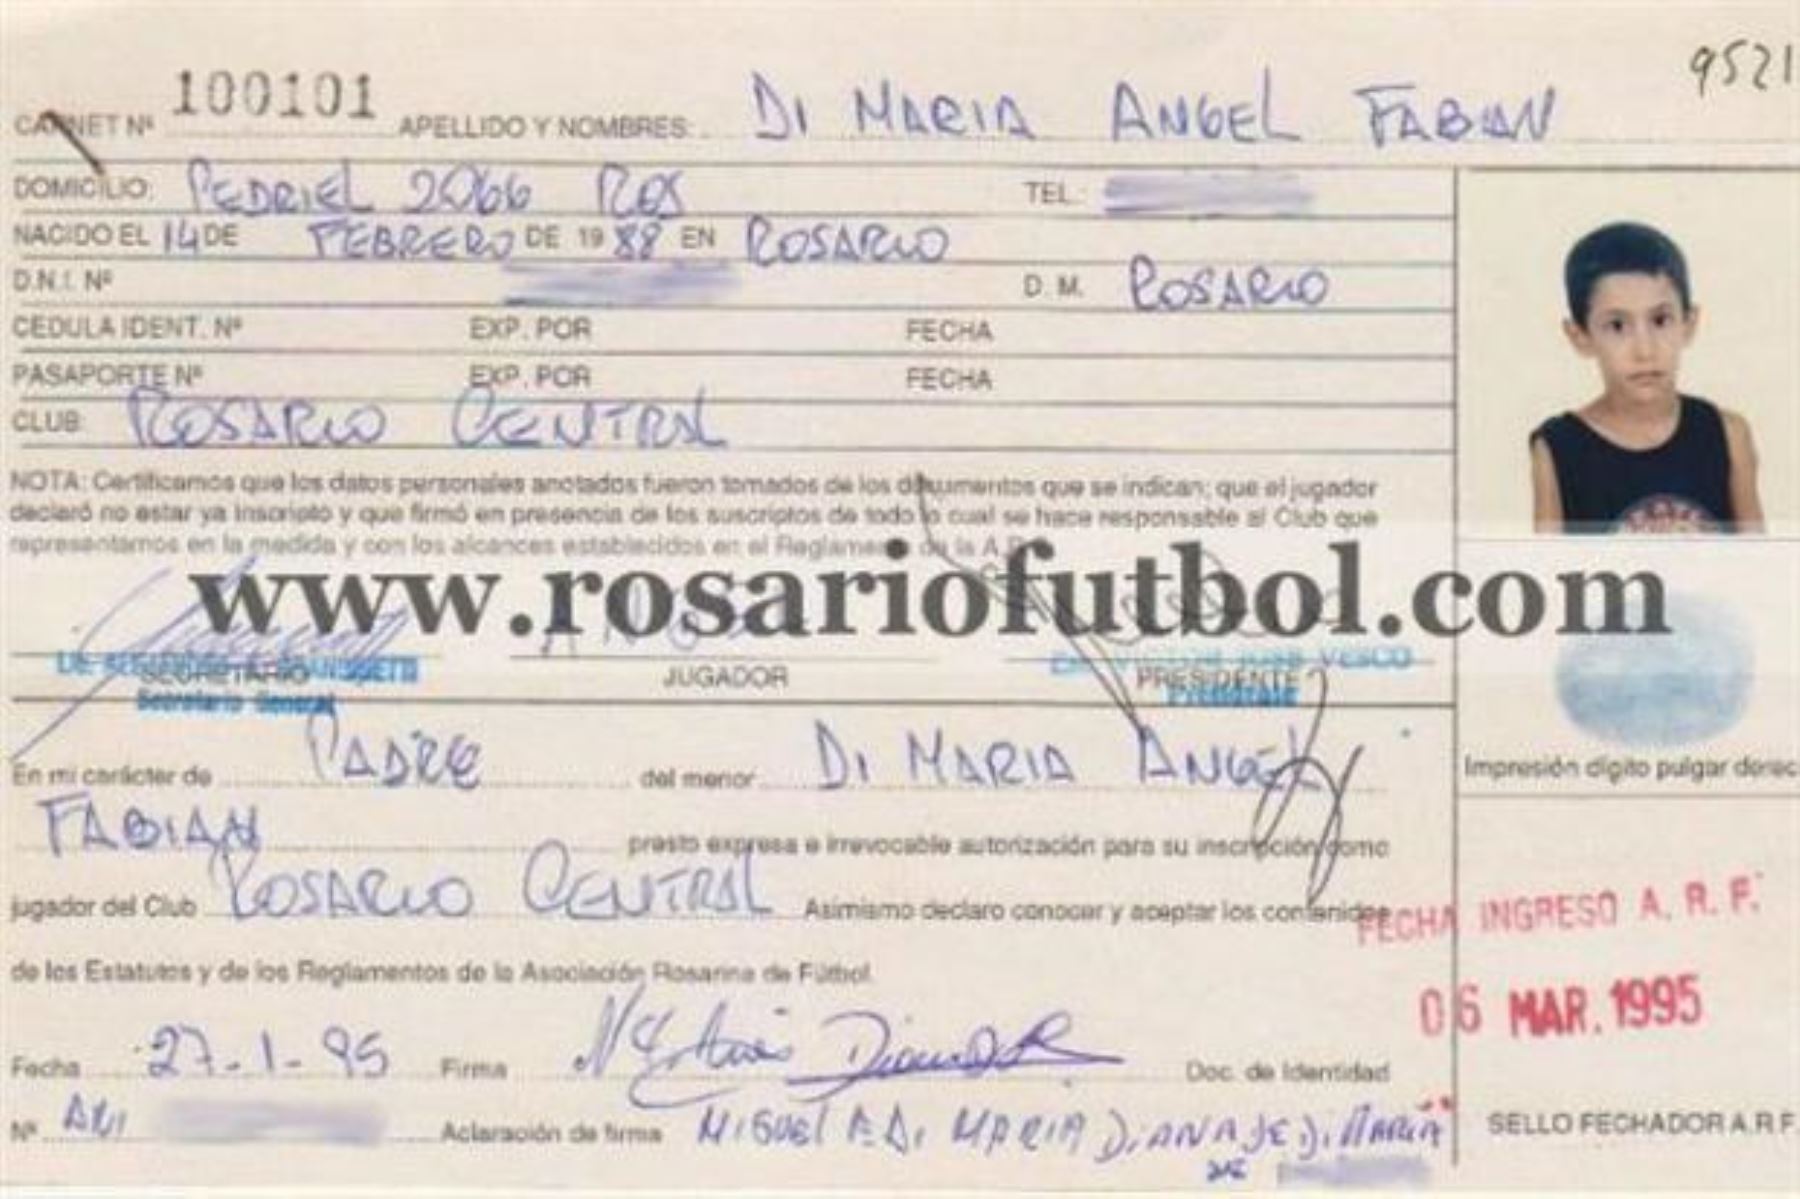 9521
CARNET Nº 100101 APELLIDO Y NOMBRES: DI MARIA ANGEL FABIAN
DOMICILIO: PEDRIEL 2066 ROS TEL.:
NACIDO EL 14 DE FEBRERO DE 1988 EN ROSARIO
D.N.I. Nº D. M. ROSARIO
CEDULA IDENT. Nº EXP. POR FECHA
PASAPORTE Nº EXP. POR FECHA
CLUB: ROSARIO CENTRAL
NOTA: Certificamos que los datos personales anotados fueron tomados de los documentos que se indican; que el jugador
declaró no estar ya inscripto y que firmó en presencia de los suscriptos de todo lo cual se hace responsable al Club que
representamos en la medida y con los alcances establecidos en el Reglamento de la A.R.
www.rosariofutbol.com
SECRETARIO JUGADOR PRESIDENTE
Secretario General VICTOR JOSE VESCO
En mi carácter de PADRE del menor DI MARIA ANGEL
FABIAN presto expresa e irrevocable autorización para su inscripción como
jugador del Club ROSARIO CENTRAL Asimismo declaro conocer y aceptar los contenidos
de los Estatutos y de los Reglamentos de la Asociación Rosarina de Fútbol.
Fecha 27-1-95 Firma Doc. de Identidad
Nº DNI Aclaración de firma MIGUEL A. DI MARIA DIANA DE DI MARIA
Impresión dígito pulgar derec
FECHA INGRESO A. R. F.
06 MAR. 1995
SELLO FECHADOR A.R.F.